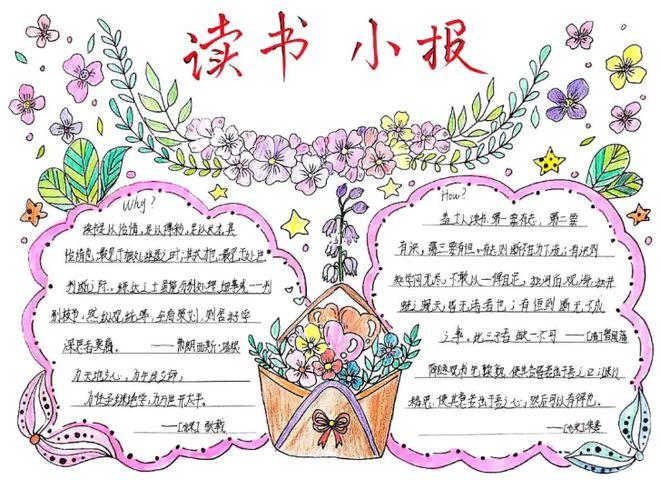 读书 小报
Why?
读书足以怡情,足以博彩,足以长才。其
怡情也,最见于独处幽居之时;其
判断之际。练达之士虽能分别处理细事或一一判
别枝节,然纵观统筹,全局策划,则舍好学
深思者莫属。——弗朗西斯·培根
为天地立心,为生民立命,
为往圣继绝学,为万世开太平。
——[北宋]张载
How?
盖士人读书,第一要有志,第二要
有识,第三要有恒。有志则断不甘为下流;有识则
知学问无尽,不敢以一得自足,如河伯观海,如井
蛙窥天,皆无
者也;有恒则断无不成
之事。此三者缺一不可——[清]曾国藩
观书先
读,使其言皆出于吾之口;继以
精思,使其意皆出于吾之心,然后可以有得也。